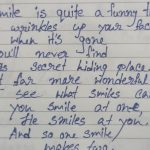 mile is quite a funny t
wrinkles up your fac
when it's gone
ou'll never find
s secret hiding place.
far more wonderful
see what smiles ca
you smile at one
He smiles at you.
And so one smile
makes two.